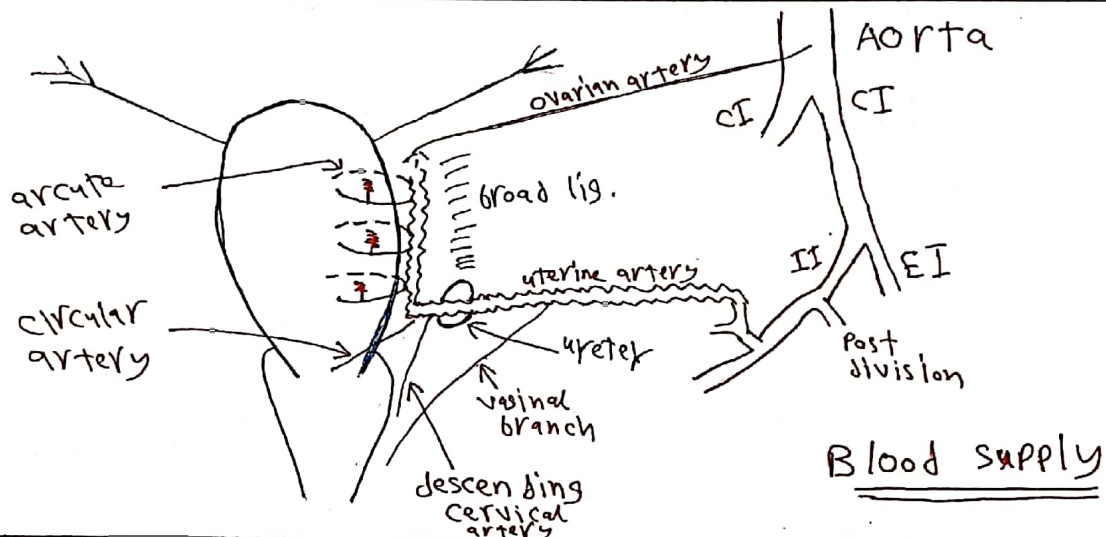 Aorta
ovarian artery
CI
CI
arcute
artery
broad lig.
II
EI
uterine artery
circular
artery
ureter
post
division
vaginal
branch
descending
cervical
artery
Blood supply